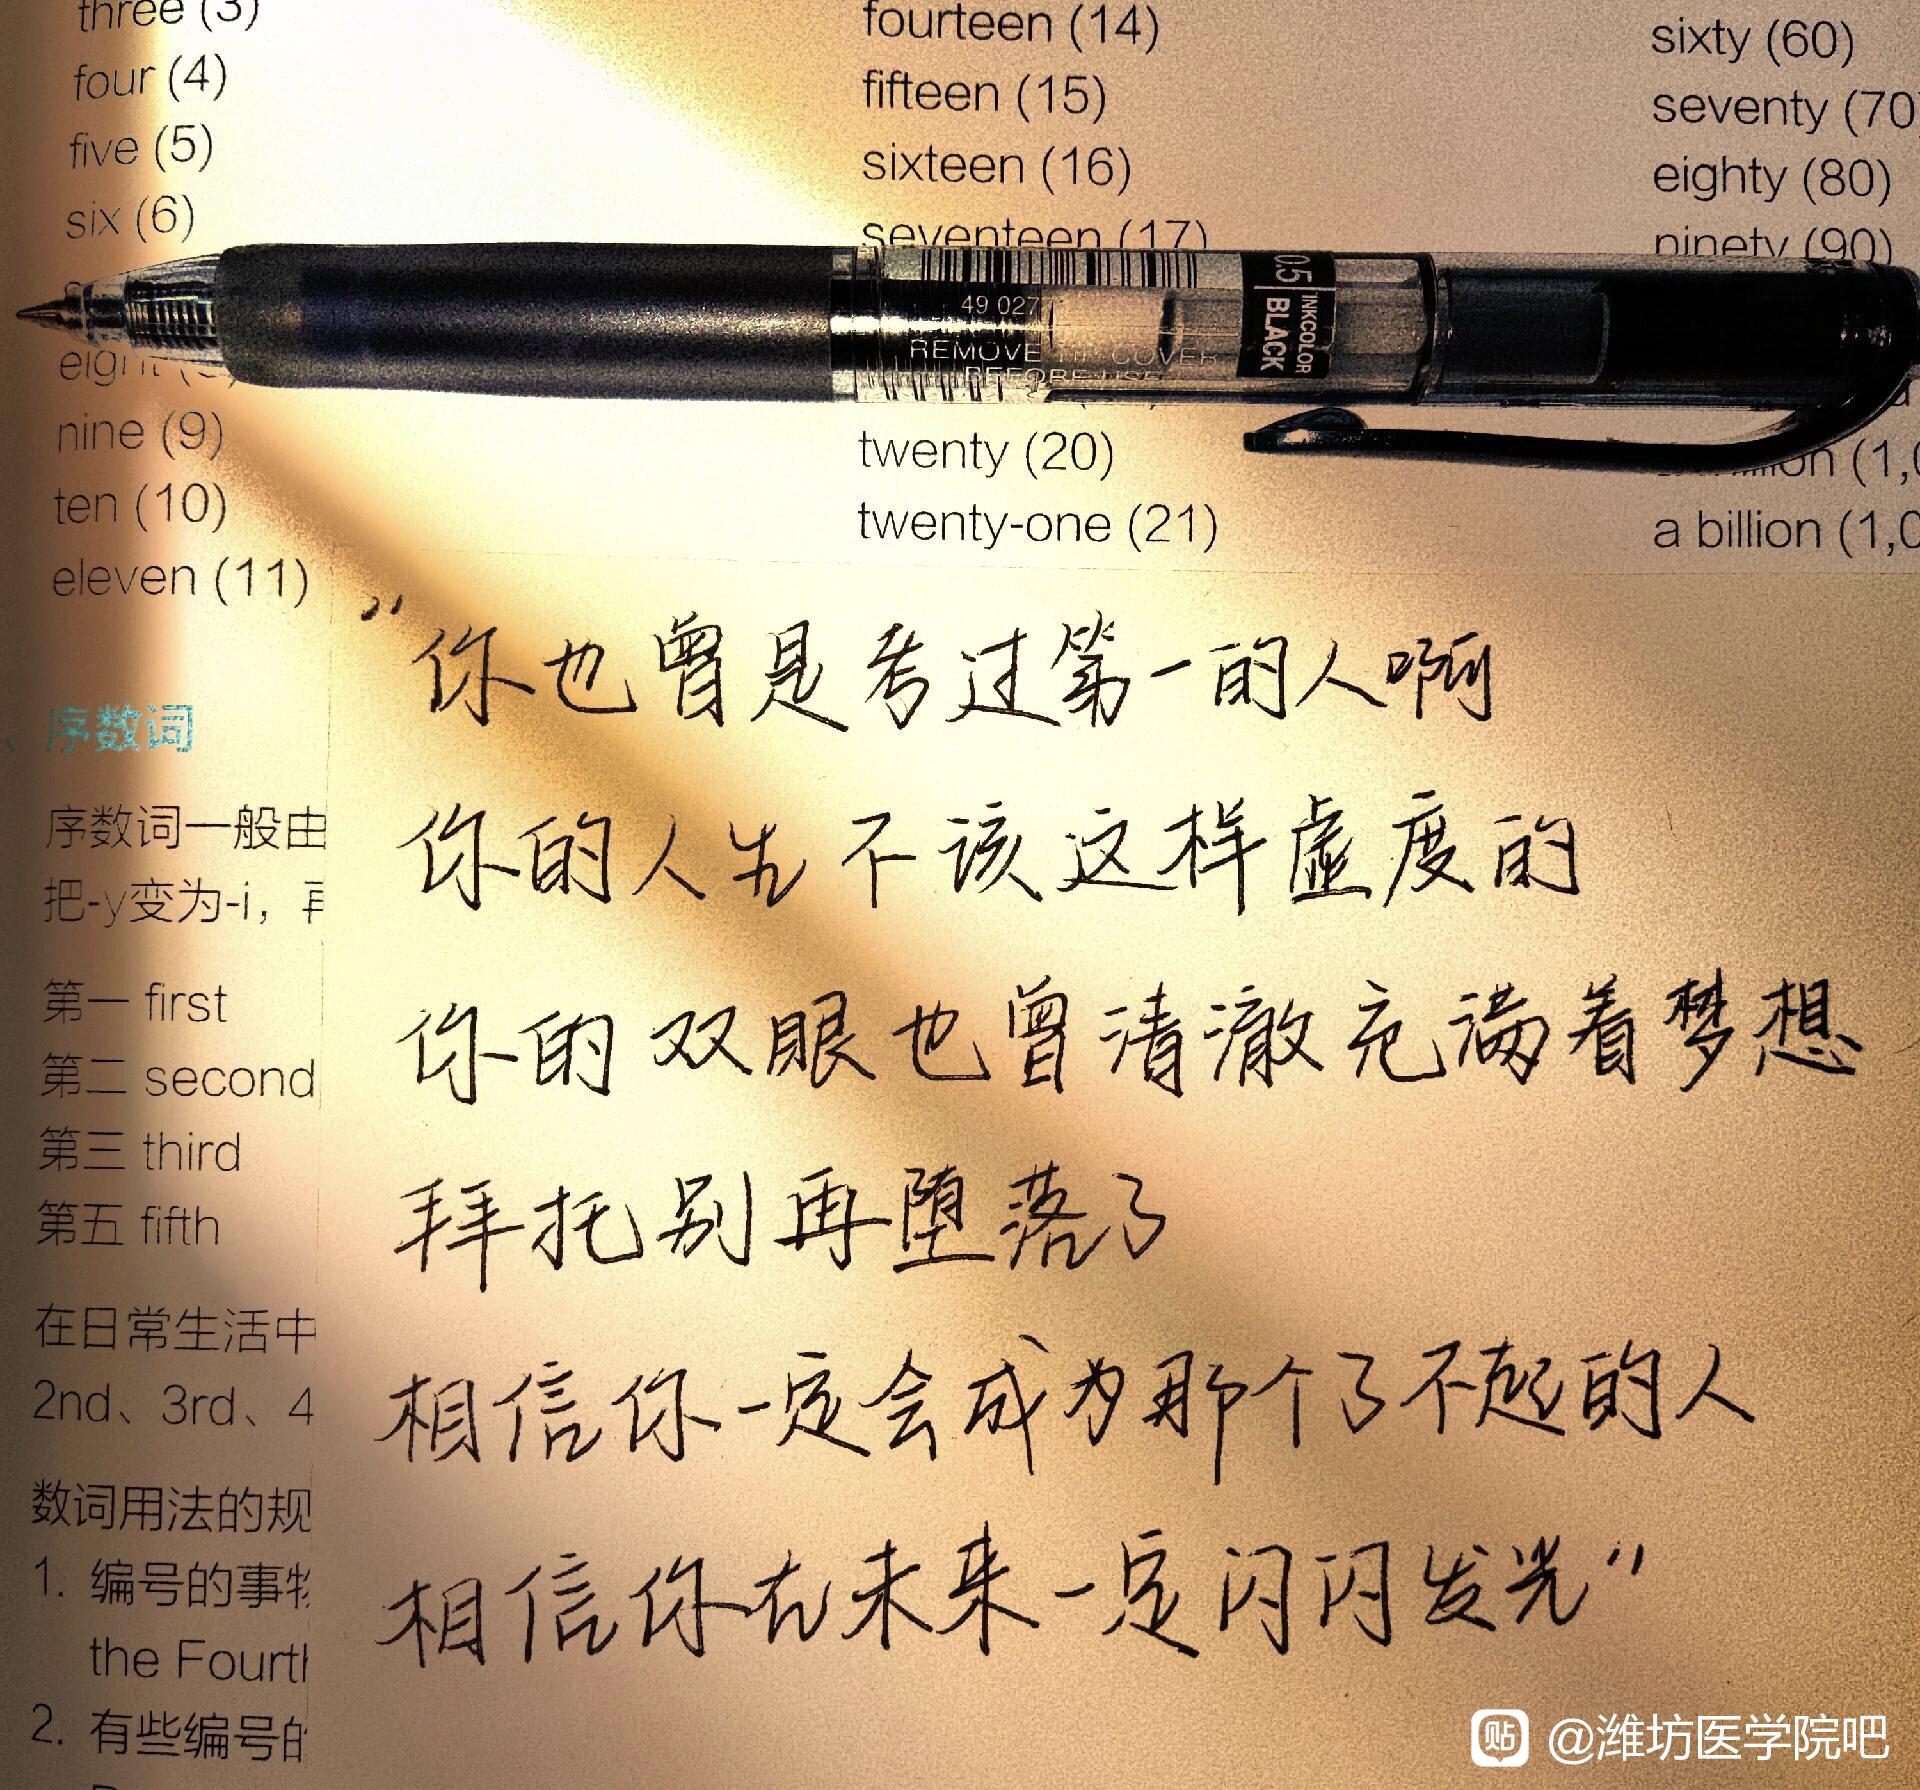 three (3)
four (4)
five (5)
six (6)
nine (9)
ten (10)
eleven (11)
fourteen (14)
fifteen (15)
sixteen (16)
seventeen (17)
twenty (20)
twenty-one (21)
sixty (60)
seventy (70
eighty (80)
ninety (90)
a billion (1,0
49 027
REMOVE TIP COVER
BEFORE USE
0.5
INKCOLOR
BLACK
、序数词
序数词一般由
把-y变为-i，再
第一 first
第二 second
第三 third
第五 fifth
在日常生活中
2nd、3rd、4
数词用法的规
1. 编号的事物
the Fourth
2. 有些编号的
“你也曾是考过第一的人啊
你的人生不该这样虚度的
你的双眼也曾清澈充满着梦想
拜托别再堕落了
相信你一定会成为那个了不起的人
相信你在未来一定闪闪发光”
贴 @潍坊医学院吧